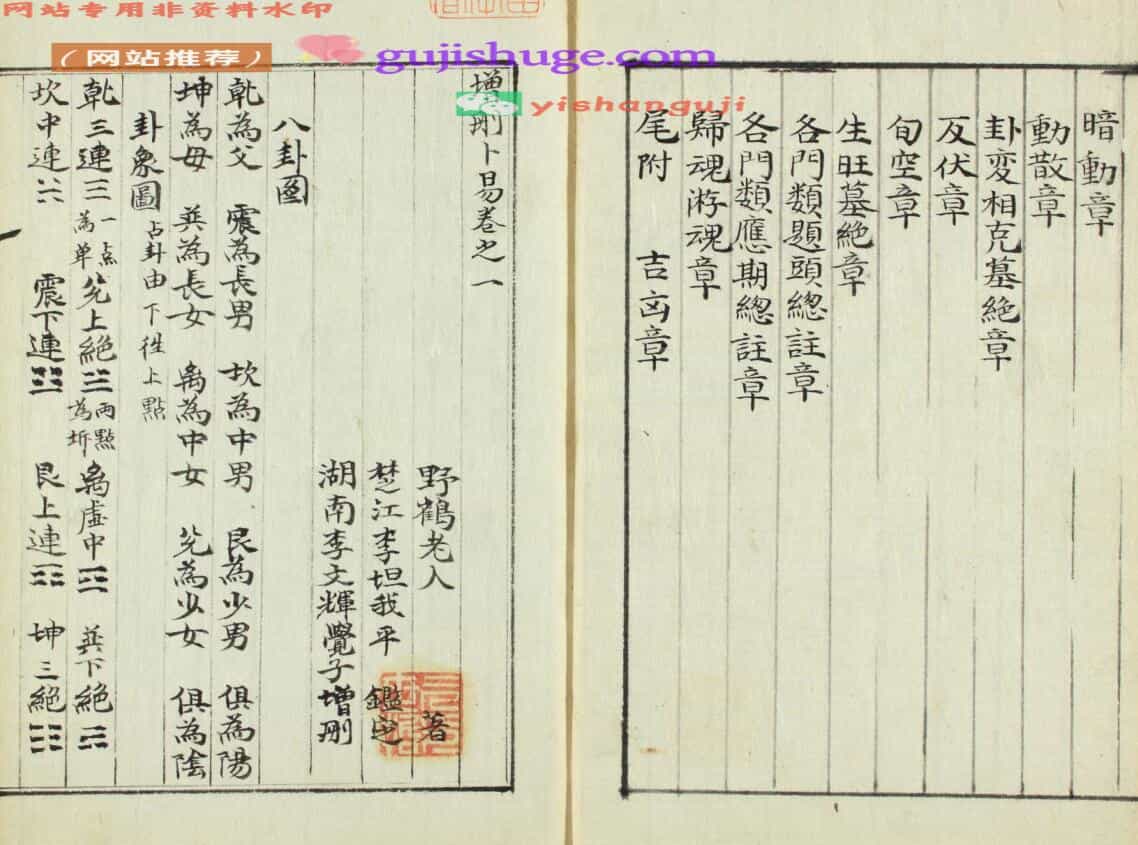 网站专用非资料水印
（网站推荐）
gujishuge.com
yishanguji
暗動章
動散章
卦変相克墓絶章
反伏章
旬空章
生旺墓絶章
各門類題頭緫註章
各門類應期緫註章
歸魂游魂章
尾附 吉凶章
增刪卜易卷之一
野鶴老人 著
楚江李坦我平 鑑定
湖南李文輝覺子增刪
八卦圖
乾為父 震為長男 坎為中男 艮為少男 俱為陽
坤為母 巽為長女 离為中女 兑為少女 俱為陰
卦象圖 占卦由下徃上點
乾三連☰ 一点為单 兑上絕☱ 兩點為坼 离虛中☲ 巽下絕☴
坎中連☵ 震下連☳ 艮上連☶ 坤三絕☷